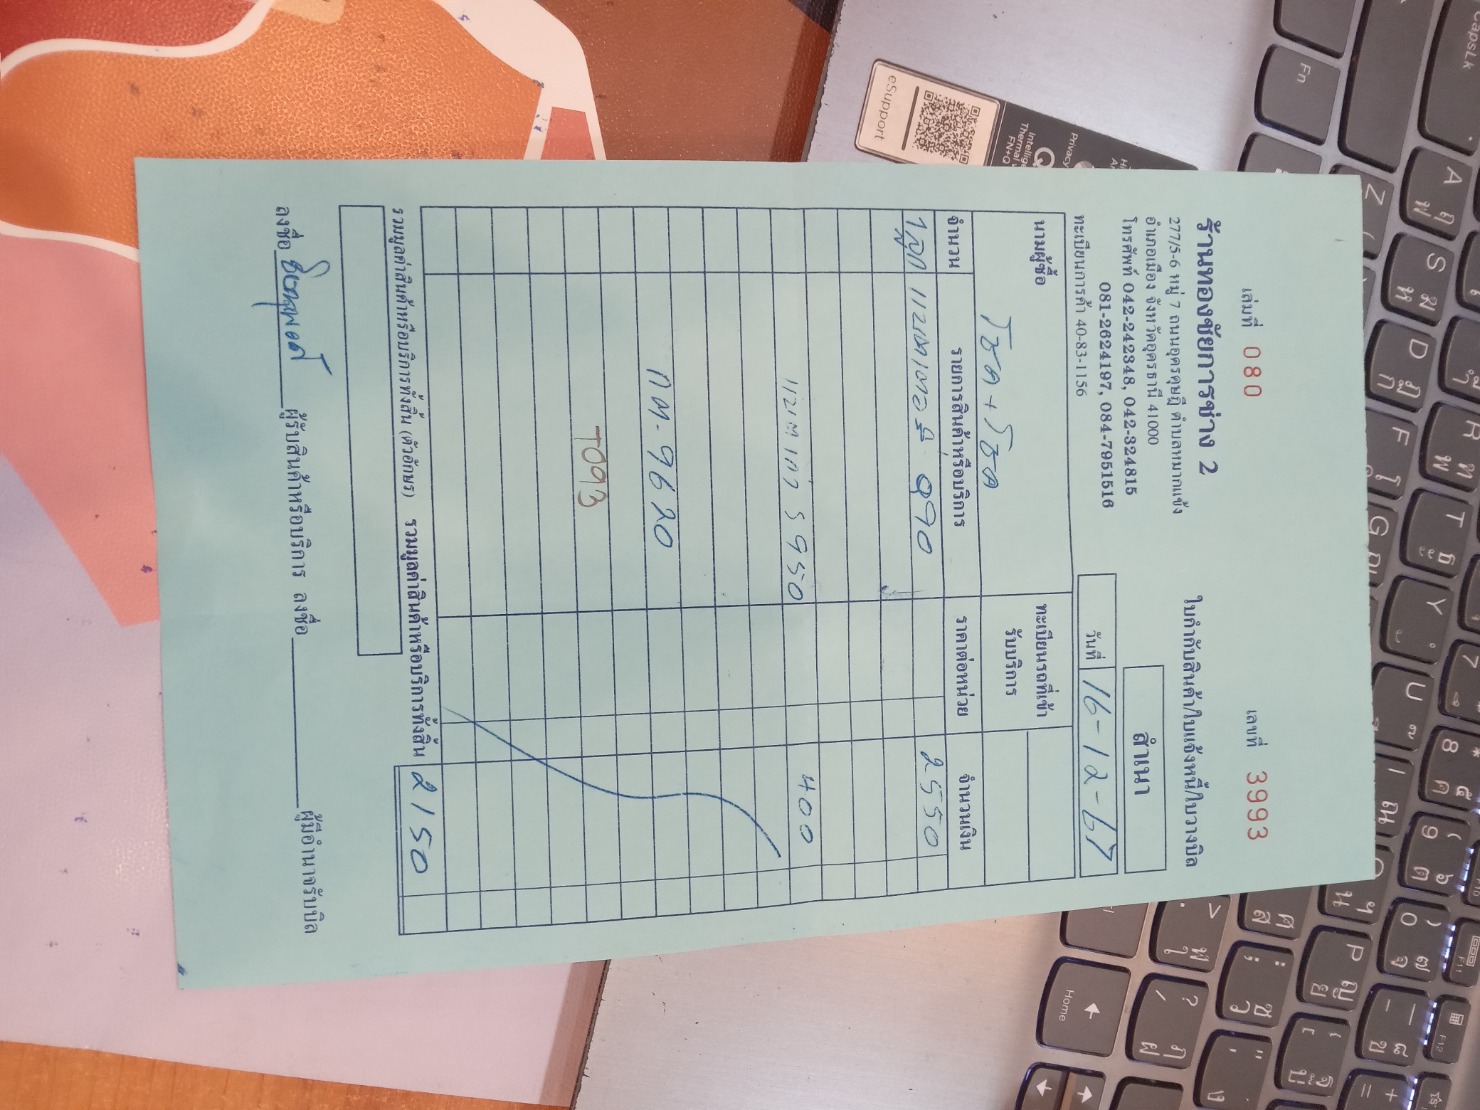 เล่มที่ 080
เลขที่ 3993
ร้านทองชัยการช่าง 2
277/5-6 หมู่ 7 ถนนอุดรดุษฎี ตำบลหมากแข้ง
อำเภอเมือง จังหวัดอุดรธานี 41000
โทรศัพท์ 042-242348, 042-324815
081-2624197, 084-7951516
ทะเบียนการค้า 40-83-1156
ใบกำกับสินค้า/ใบแจ้งหนี้/ใบวางบิล
สำเนา
วันที่ 16-12-67
นามผู้ซื้อ
ทะเบียนรถที่เข้ารับบริการ
จำนวน รายการสินค้าหรือบริการ ราคาต่อหน่วย จำนวนเงิน
1 ลูก แบตเตอรี่ Q90 2550
แบตเก่า S950 400
กต-9620
T093
รวมมูลค่าสินค้าหรือบริการทั้งสิ้น (ตัวอักษร) รวมมูลค่าสินค้าหรือบริการทั้งสิ้น 2150
ลงชื่อ ผู้รับสินค้าหรือบริการ ลงชื่อ ผู้มีอำนาจรับบิล
eSupport
CapsLk
Fn
Home